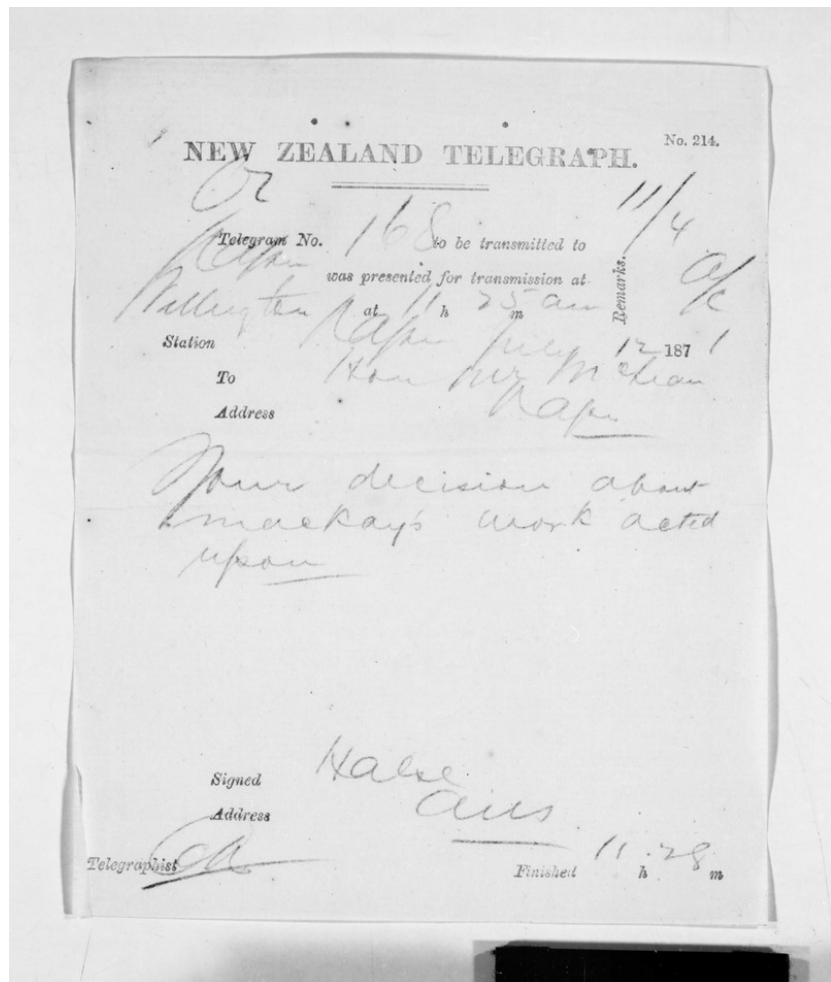 No. 214.
NEW ZEALAND TELEGRAPH.
11/4
Telegram No. 168 to be transmitted to
Napier was presented for transmission at
Remarks.
Wellington at 11 h 25 am m
Station Napier July 12 1871
To Hon Mr McLean
Address Napier
Your decision about
mackay's work acted
upon
Signed Halse
Address
Telegraphist
Finished 11 h 28 m